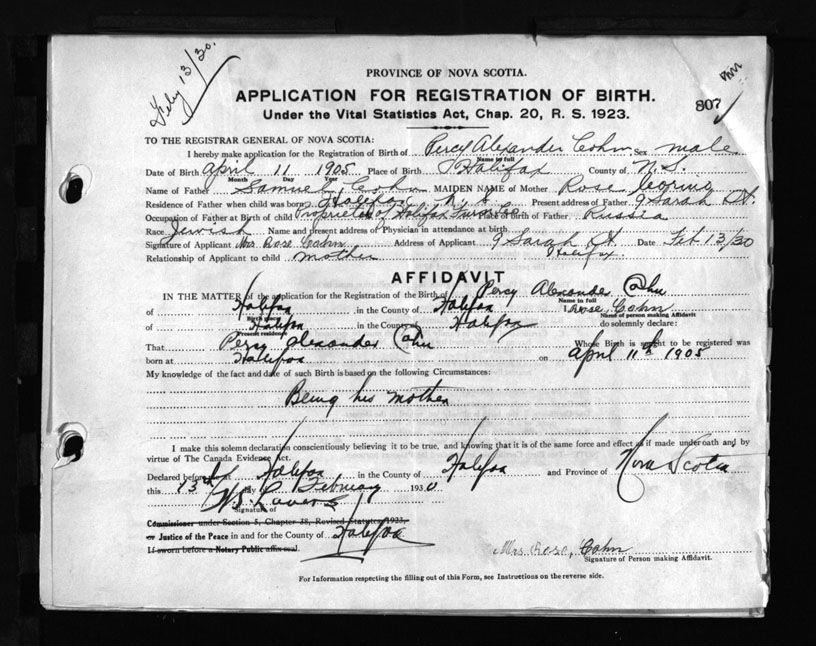 Feby 13/30.
PROVINCE OF NOVA SCOTIA.
APPLICATION FOR REGISTRATION OF BIRTH.
807
Under the Vital Statistics Act, Chap. 20, R. S. 1923.
TO THE REGISTRAR GENERAL OF NOVA SCOTIA:
I hereby make application for the Registration of Birth of Percy Alexander Cohn Sex male
Name in full
Date of Birth April 11 1905 Place of Birth Halifax County of N.S.
Month Day Year
Name of Father Samuel Cohn MAIDEN NAME of Mother Rose
Residence of Father when child was born Halifax, N. S. Present address of Father 9 Sarah St.
Occupation of Father at Birth of child Proprietor of Halifax of Birth of Father Russia
Race Jewish Name and present address of Physician in attendance at birth
Signature of Applicant Mrs Rose Cohn Address of Applicant 9 Sarah St Date Feb 13/30
Relationship of Applicant to child mother Halifax.
AFFIDAVIT
IN THE MATTER of the application for the Registration of the Birth of Percy Alexander Cohn
Name in full
of Halifax in the County of Halifax I Rose Cohn
Birth place Name of person making Affidavit
of Halifax in the County of Halifax do solemnly declare:
Present residence
That Percy Alexander Cohn Whose Birth is sought to be registered was
born at Halifax on April 11th 1905
My knowledge of the fact and date of such Birth is based on the following Circumstances:
Being his mother
I make this solemn declaration conscientiously believing it to be true, and knowing that it is of the same force and effect as if made under oath and by
virtue of The Canada Evidence Act.
Declared before at Halifax in the County of Halifax and Province of Nova Scotia
this 13th February 1930
Signature of
Commissioner under Section 5, Chapter 38, Revised Statutes 1923,
or Justice of the Peace in and for the County of Halifax
If sworn before a Notary Public affix seal.
Mrs Rose, Cohn
Signature of Person making Affidavit.
For Information respecting the filling out of this Form, see Instructions on the reverse side.